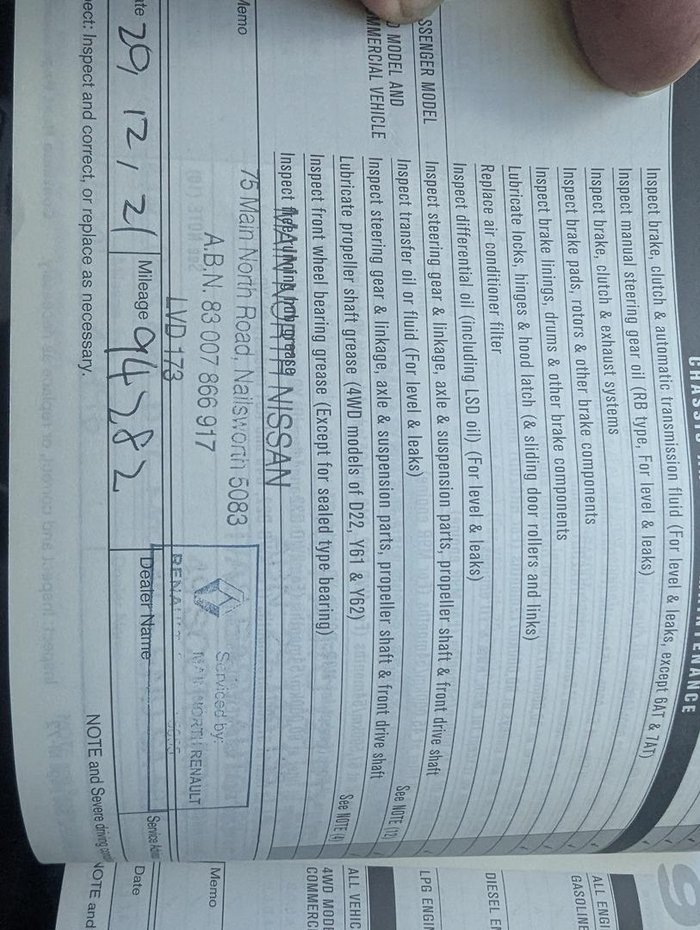 CHASSIS
Inspect brake, clutch & automatic transmission fluid (For level & leaks, except 6AT & 7AT)
Inspect manual steering gear oil (RB type, For level & leaks)
Inspect brake, clutch & exhaust systems
Inspect brake pads, rotors & other brake components
Inspect brake linings, drums & other brake components
Lubricate locks, hinges & hood latch (& sliding door rollers and links)
Replace air conditioner filter
Inspect differential oil (including LSD oil) (For level & leaks)
SSENGER MODEL
Inspect steering gear & linkage, axle & suspension parts, propeller shaft & front drive shaft
D MODEL AND
MMERCIAL VEHICLE
Inspect transfer oil or fluid (For level & leaks) See NOTE (12)
Inspect steering gear & linkage, axle & suspension parts, propeller shaft & front drive shaft
Lubricate propeller shaft grease (4WD models of D22, Y61 & Y62) See NOTE (4)
Inspect front wheel bearing grease (Except for sealed type bearing)
Inspect free running hub grease
MAIN NORTH NISSAN
75 Main North Road, Nailsworth 5083
A.B.N. 83 007 866 917
LVD 173
Memo
Serviced by:
MAIN NORTH RENAULT
RENAULT
ate 29, 12, 21
Mileage 94282
Dealer Name
Service
pect: Inspect and correct, or replace as necessary.
NOTE and Severe driving
9
ALL ENGI
GASOLINE
DIESEL E
LPG ENGI
ALL VEHIC
4WD MODE
COMMERC
Memo
Date
NOTE and